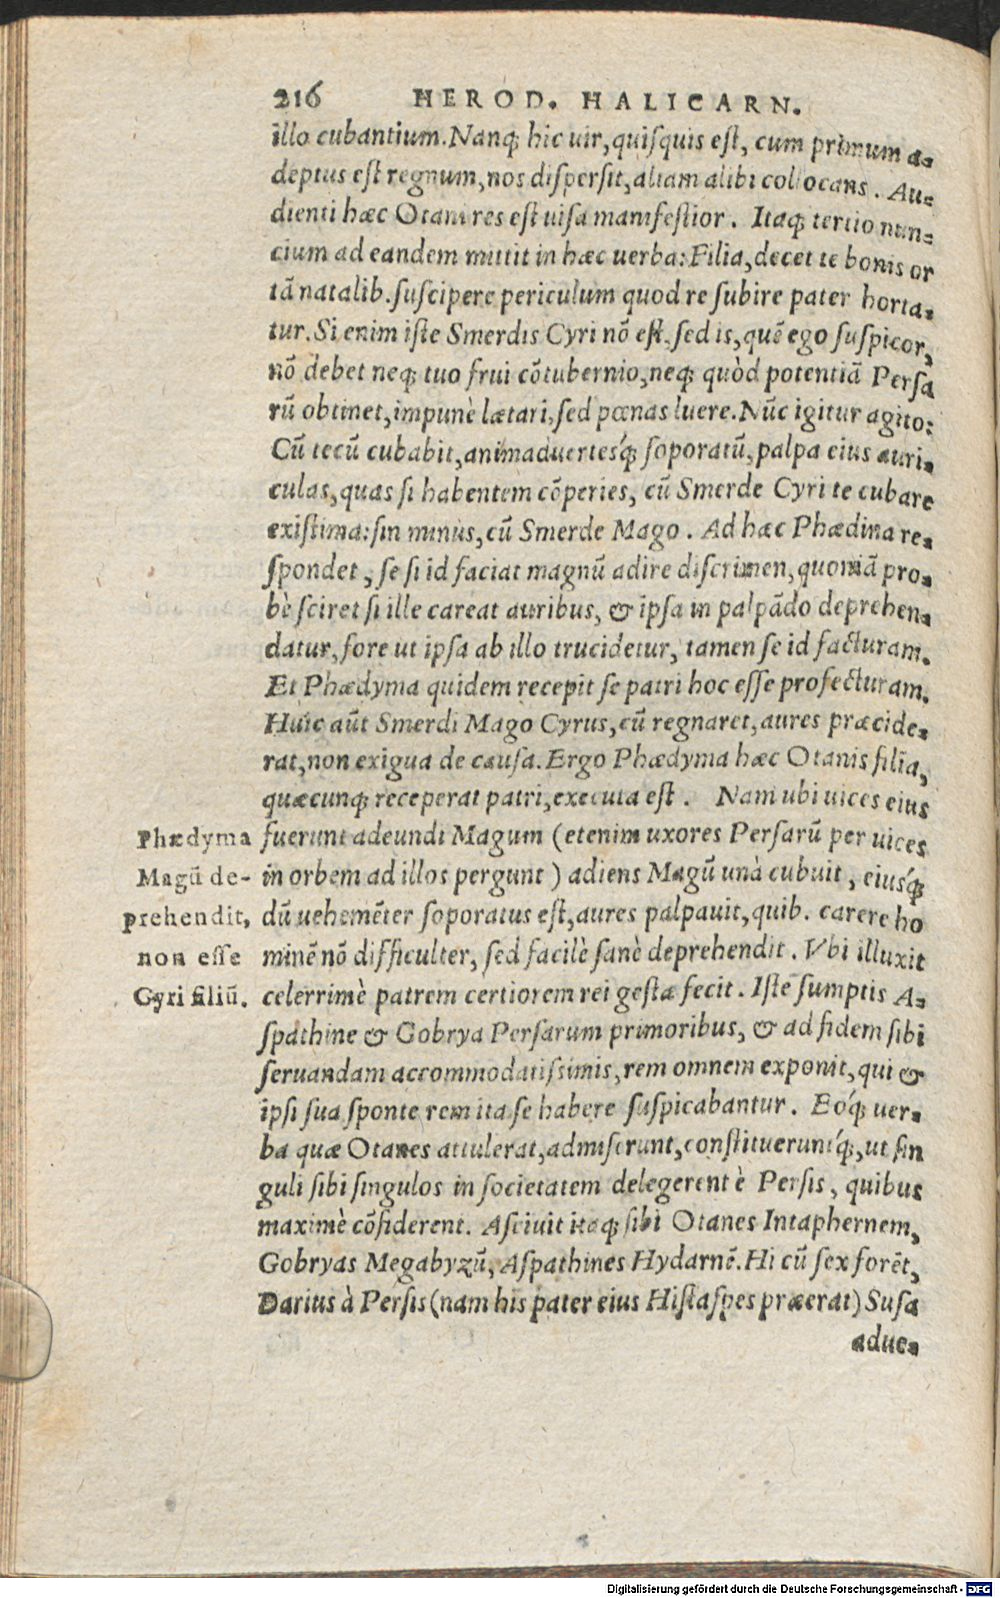 216 HEROD. HALICARN.
illo cubantium. Nanq; hic uir, quiſquis eſt, cum primum a-
deptus eſt regnum, nos diſperſit, aliam alibi collocans. Au-
dienti hæc Otani res eſt uiſa manifeſtior. Itaq; tertio nun-
cium ad eandem mittit in hæc uerba: Filia, decet te bonis or
tã natalib. ſuſcipere periculum quod re ſubire pater horta-
tur. Si enim iſte Smerdis Cyri nõ eſt, ſed is, quẽ ego ſuſpicor,
nõ debet neq; tuo frui cõtubernio, neq; quòd potentiã Perſa
rũ obtinet, impunè lætari, ſed pœnas luere. Nũc igitur agito:
Cũ tecũ cubabit, animaduertesq́; ſoporatũ, palpa eius auri-
culas, quas ſi habentem cõperies, cũ Smerde Cyri te cubare
exiſtima: ſin minus, cũ Smerde Mago. Ad hæc Phædina re-
ſpondet, ſe ſi id faciat magnũ adire diſcrimen, quoniã pro-
bè ſciret ſi ille careat auribus, & ipſa in palpãdo deprehen-
datur, fore ut ipſa ab illo trucidetur, tamen ſe id facturam.
Et Phædyma quidem recepit ſe patri hoc eſſe profecturam.
Huic aũt Smerdi Mago Cyrus, cũ regnaret, aures præcide-
rat, non exigua de cauſa. Ergo Phædyma hæc Otanis filia,
quæcunq; receperat patri, executa eſt. Nam ubi uices eius
fuerunt adeundi Magum (etenim uxores Perſarũ per uices
in orbem ad illos pergunt) adiens Magũ unà cubuit, eiusq́;
dũ uehemẽter ſoporatus eſt, aures palpauit, quib. carere ho
minẽ nõ difficulter, ſed facilè ſanè deprehendit. Vbi illuxit
celerrimè patrem certiorem rei geſtæ fecit. Iſte ſumptis A-
ſpathine & Gobrya Perſarum primoribus, & ad fidem ſibi
ſeruandam accommodatiſsimis, rem omnem exponit, qui &
ipſi ſua ſponte rem ita ſe habere ſuſpicabantur. Eoq́; uer-
ba quæ Otanes attulerat, admiſerunt, conſtitueruntq́;, ut ſin
guli ſibi ſingulos in ſocietatem delegerent è Perſis, quibus
maximè cõfiderent. Aſciuit itaq; ſibi Otanes Intaphernem,
Gobryas Megabyzũ, Aſpathines Hydarnẽ. Hi cũ ſex forẽt,
Darius à Perſis (nam his pater eius Hiſtaſpes præerat) Suſa
adue-
Phædyma
Magũ de-
prehendit,
non eſſe
Cyri filiũ.
Digitalisierung gefördert durch die Deutsche Forschungsgemeinschaft - DFG